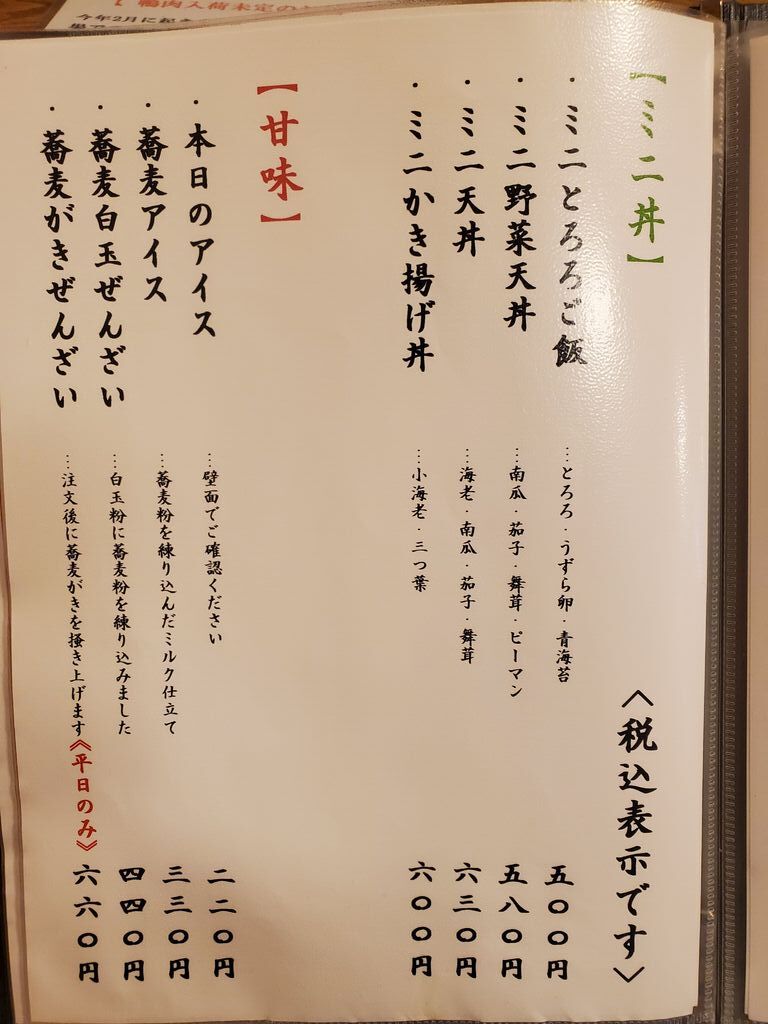 【鴨肉入荷未定の
今年2月に起き
【ミニ丼】
〈税込表示です〉
・ミニとろろご飯 …とろろ・うずら卵・青海苔 五〇〇円
・ミニ野菜天丼 …南瓜・茄子・舞茸・ピーマン 五八〇円
・ミニ天丼 …海老・南瓜・茄子・舞茸 六三〇円
・ミニかき揚げ丼 …小海老・三つ葉 六〇〇円
【甘味】
・本日のアイス …壁面でご確認ください 二二〇円
・蕎麦アイス …蕎麦粉を練り込んだミルク仕立て 三三〇円
・蕎麦白玉ぜんざい …白玉粉に蕎麦粉を練り込みました 四四〇円
・蕎麦がきぜんざい …注文後に蕎麦がきを掻き上げます《平日のみ》 六六〇円